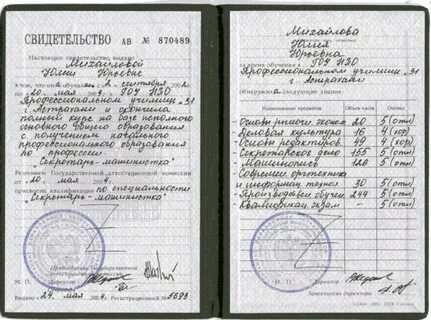 СВИДЕТЕЛЬСТВО АВ № 870489
Настоящее свидетельство выдано
Михайловой
Юлии Юрьевне
в том, что он обучал 2 сентября
по 20 мая 2004 ГОУ НПО
Профессиональном училище
г. Астрахани и окончила
полный курс на базе неполного
основного общего образования
с получением начального
профессионального образования
по профессии
"Секретарь-машинистка"
Решением Государственной аттестационной комиссии
20 мая
присвоена квалификация по специальности
"Секретарь-машинистка"
Председатель Государственной
аттестационной комиссии
Директор
М. П.
Выдано 24 мая 2004 Регистрационный № 5693
Михайлова
Юлия
Юрьевна
за время обучения в ГОУ НПО
Профессиональном училище
г. Астрахани
обнаружил следующие знания:
Наименование предметов
Основы рыноч эконом 20 5 (отл)
Деловая культура 16 4 (хор)
Основы редактиров. 49 4 (хор)
Секретарское дело 155 5 (отл)
Машинопись 126 5 (отл)
Современ оргтехника
и информац технол 30 5 (отл)
Производствен обучен 244 5 (отл)
Квалификац экзам - 5 (отл)
М. П.
Директор
Заместитель директора